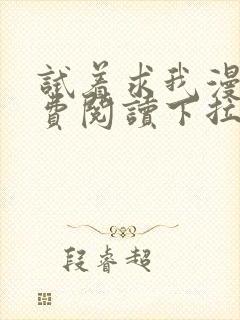 試着求我漫
费閱讀下拉
段睿超